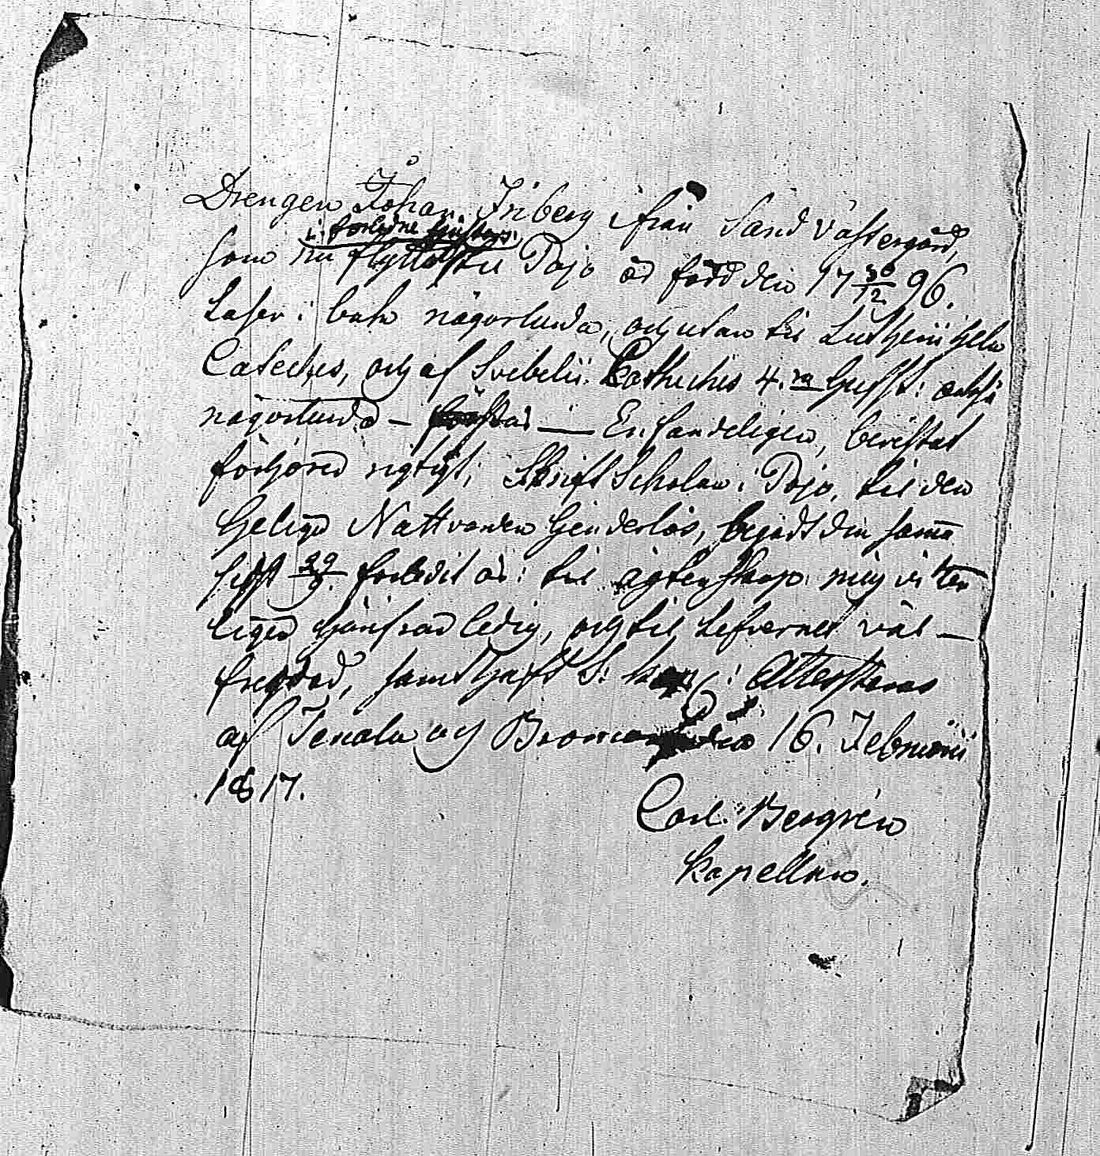 Drengen Johan Friberg ifrån Sandvassergård,
i förledne
som nu flyttat til Pojo är född den 17 30/12 96.
Läser i bok någorlunda, och utan til Lutheri hela
Cateches, och af Svebelii Kathiches 4.ra också
någorlunda – — Er handeligen, bevistat
förhören rigtigt, Skrift Scholan i Pojo, til den
Helige Nattvarden hinderlös, begådt den samma
sist 29 förledit år: til ägtenskap mig vitter
ligen hjonfrad ledig, och til lefvernet väl –
frejdad, samt haft S: kop: Attesteras
af Tenala och Bromarf 16. Februarii
1817.
Carl Bergrén
Kapellan.